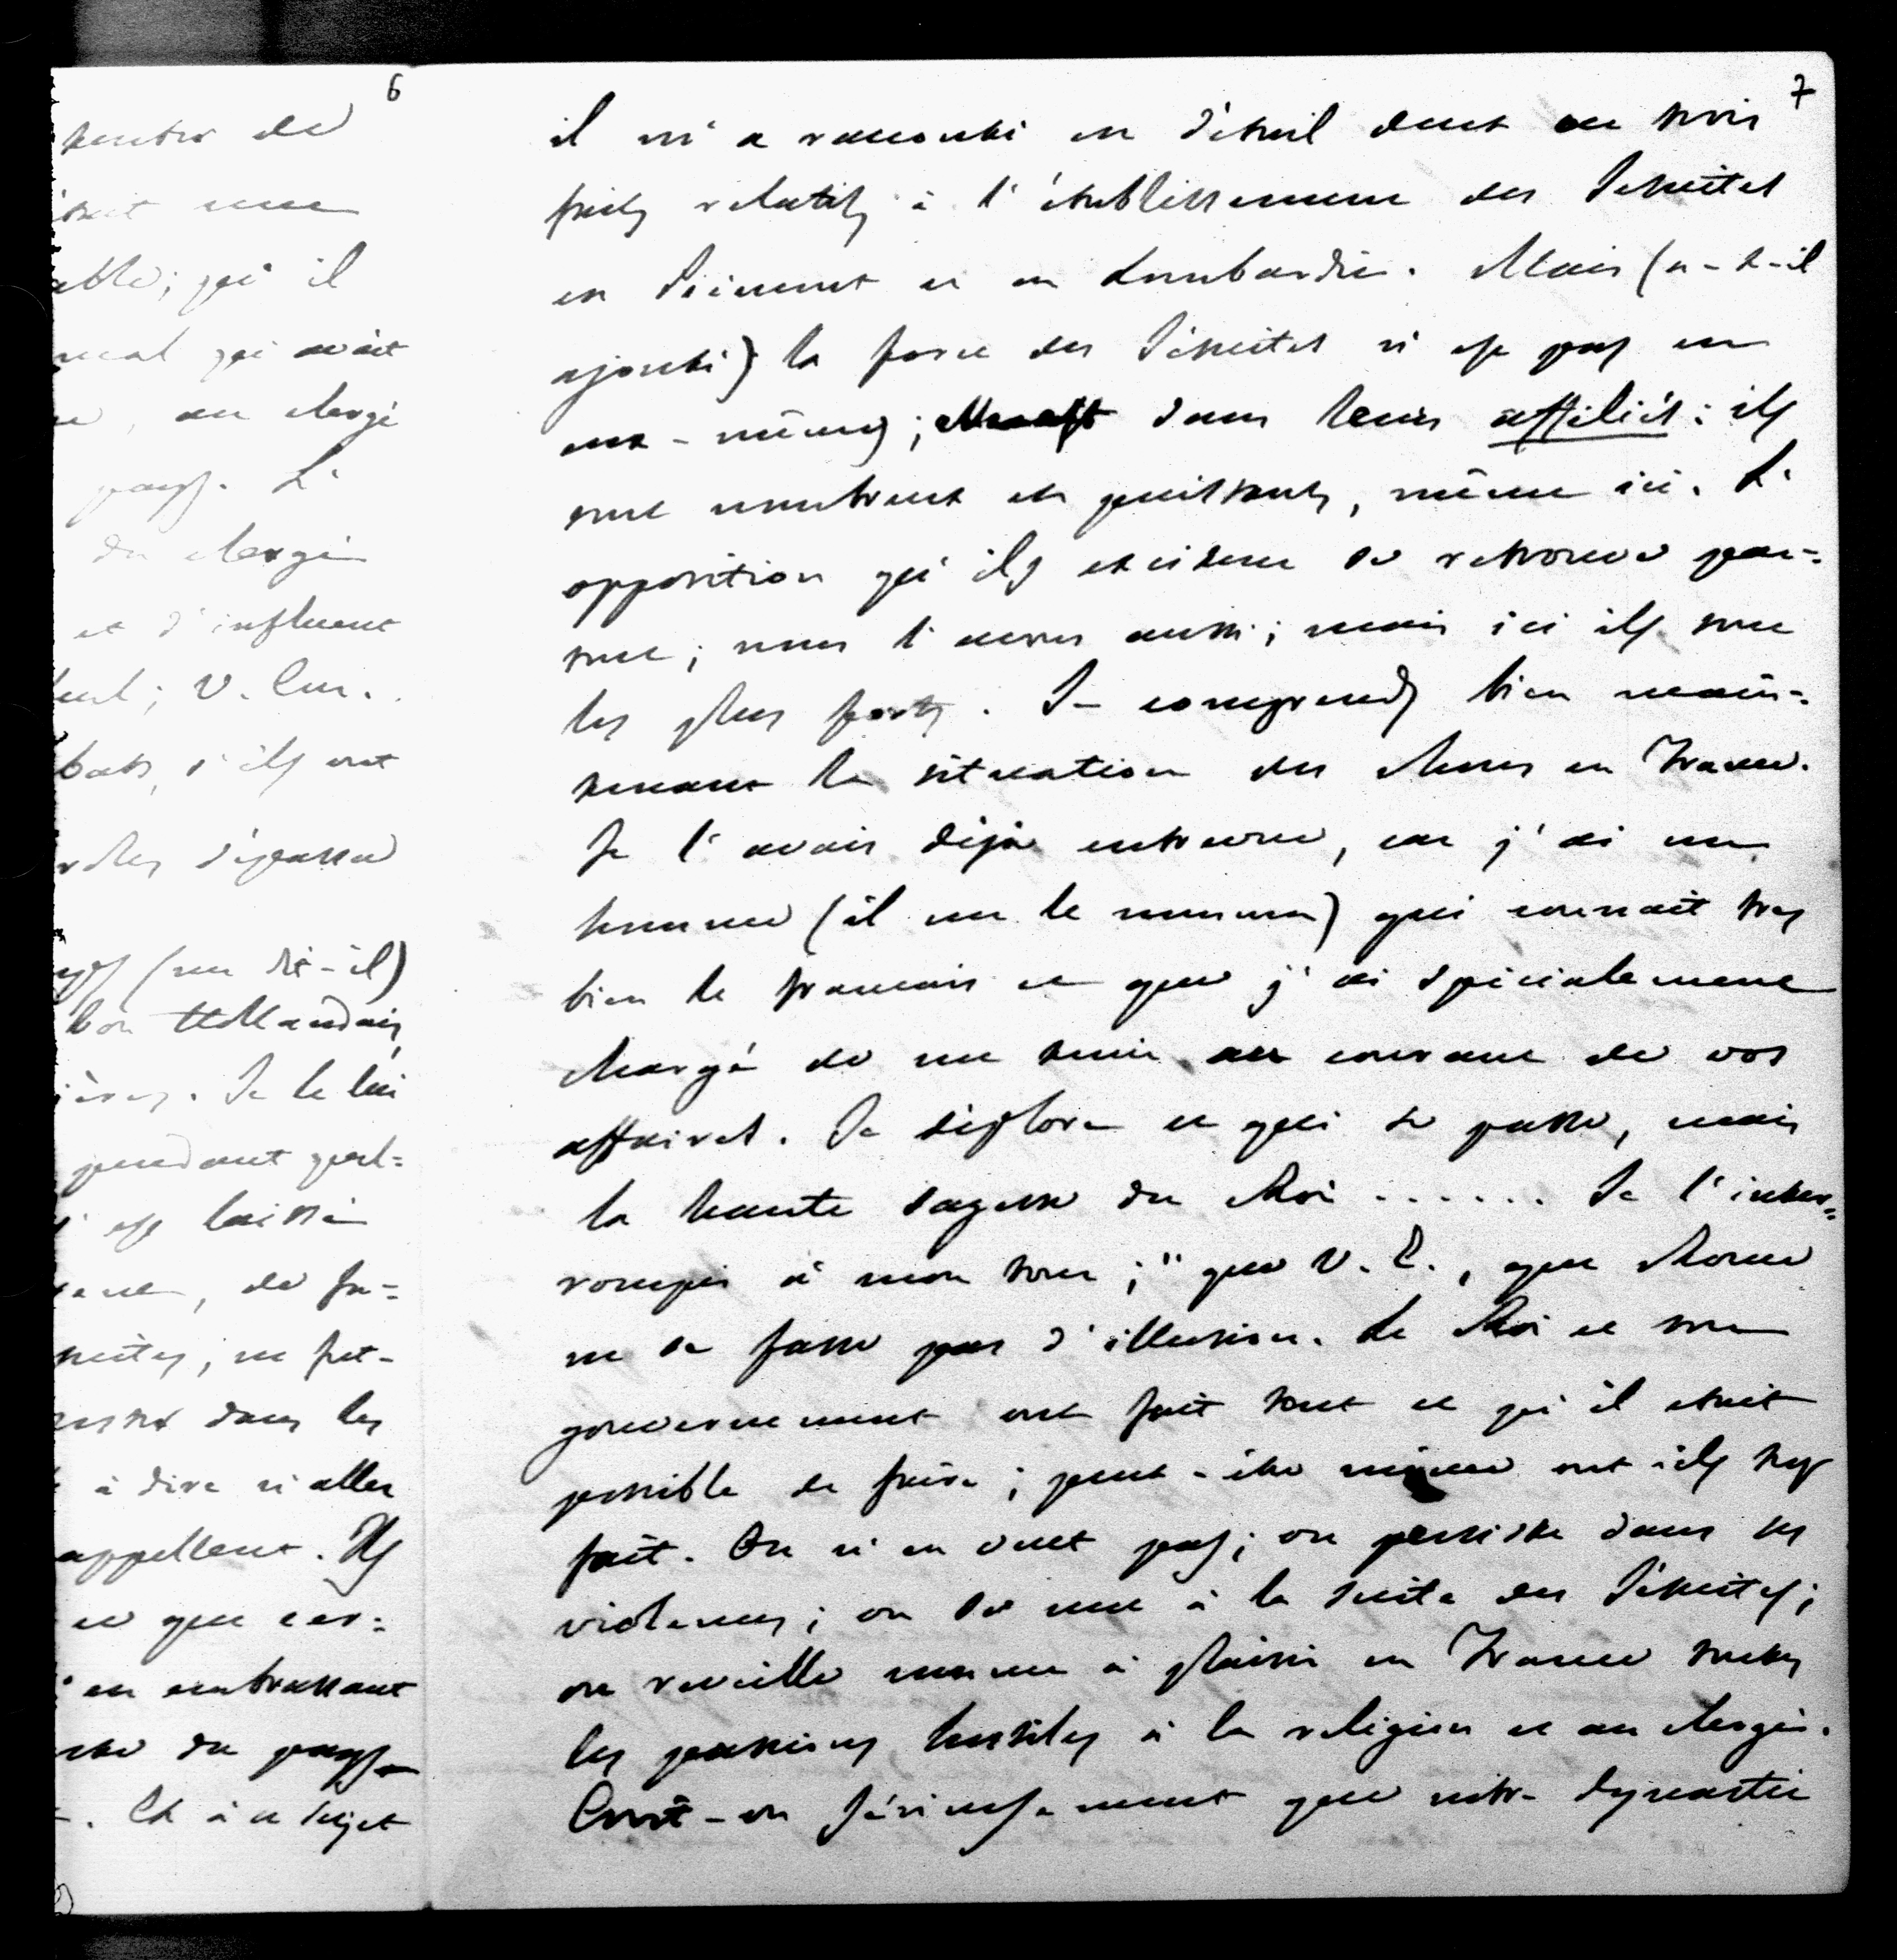 6
de
une
able; qu'il
qui avait
au clergé
pays. L'
du clergé
et d'influent
V. Em.
s'ils ont
dépassa
(me dit-il)
bon Hollandais,
Je le lui
pendant quel=
laissé
de fa=
dans les
à dire n'aller
appellent. Ils
ce que cer=
en embrassant
du pays
Et à ce sujet
7
il m'a raconté en détail deux ou trois
faits relatifs à l'établissement des Jésuites
en Piémont et en Lombardie. Mais (a-t-il
ajouté) la force des Jésuites n'est pas en
eux-mêmes; dans leurs affiliés: ils
sont nombreux et puissants, même ici. L'
opposition qu'ils excitent se retrouve par=
tout; nous l'avons aussi; mais ici ils sont
les plus forts. Je comprends bien main=
tenant la situation des choses en France.
Je l'avais déjà entrevue, car j'ai un
homme (il me le nomma) qui connait très
bien le français et que j'ai spécialement
chargé de me tenir au courant de vos
affaires. Je déplore ce qui se passe, mais
la haute sagesse du Roi ...... Je l'inter=
rompis à mon tour; "que V. E., que Rome
ne se fasse pas d'illusion. Le Roi et son
gouvernement ont fait tout ce qu'il etait
possible de faire; peut-être même ont-ils trop
fait. On n'en veut pas; on persiste dans les
violences; on se met à la suite des Jésuites;
on reveille comme à plaisir en France toutes
les passions hostiles à la religion et au clergé.
Croit-on sérieusement que notre dynastie